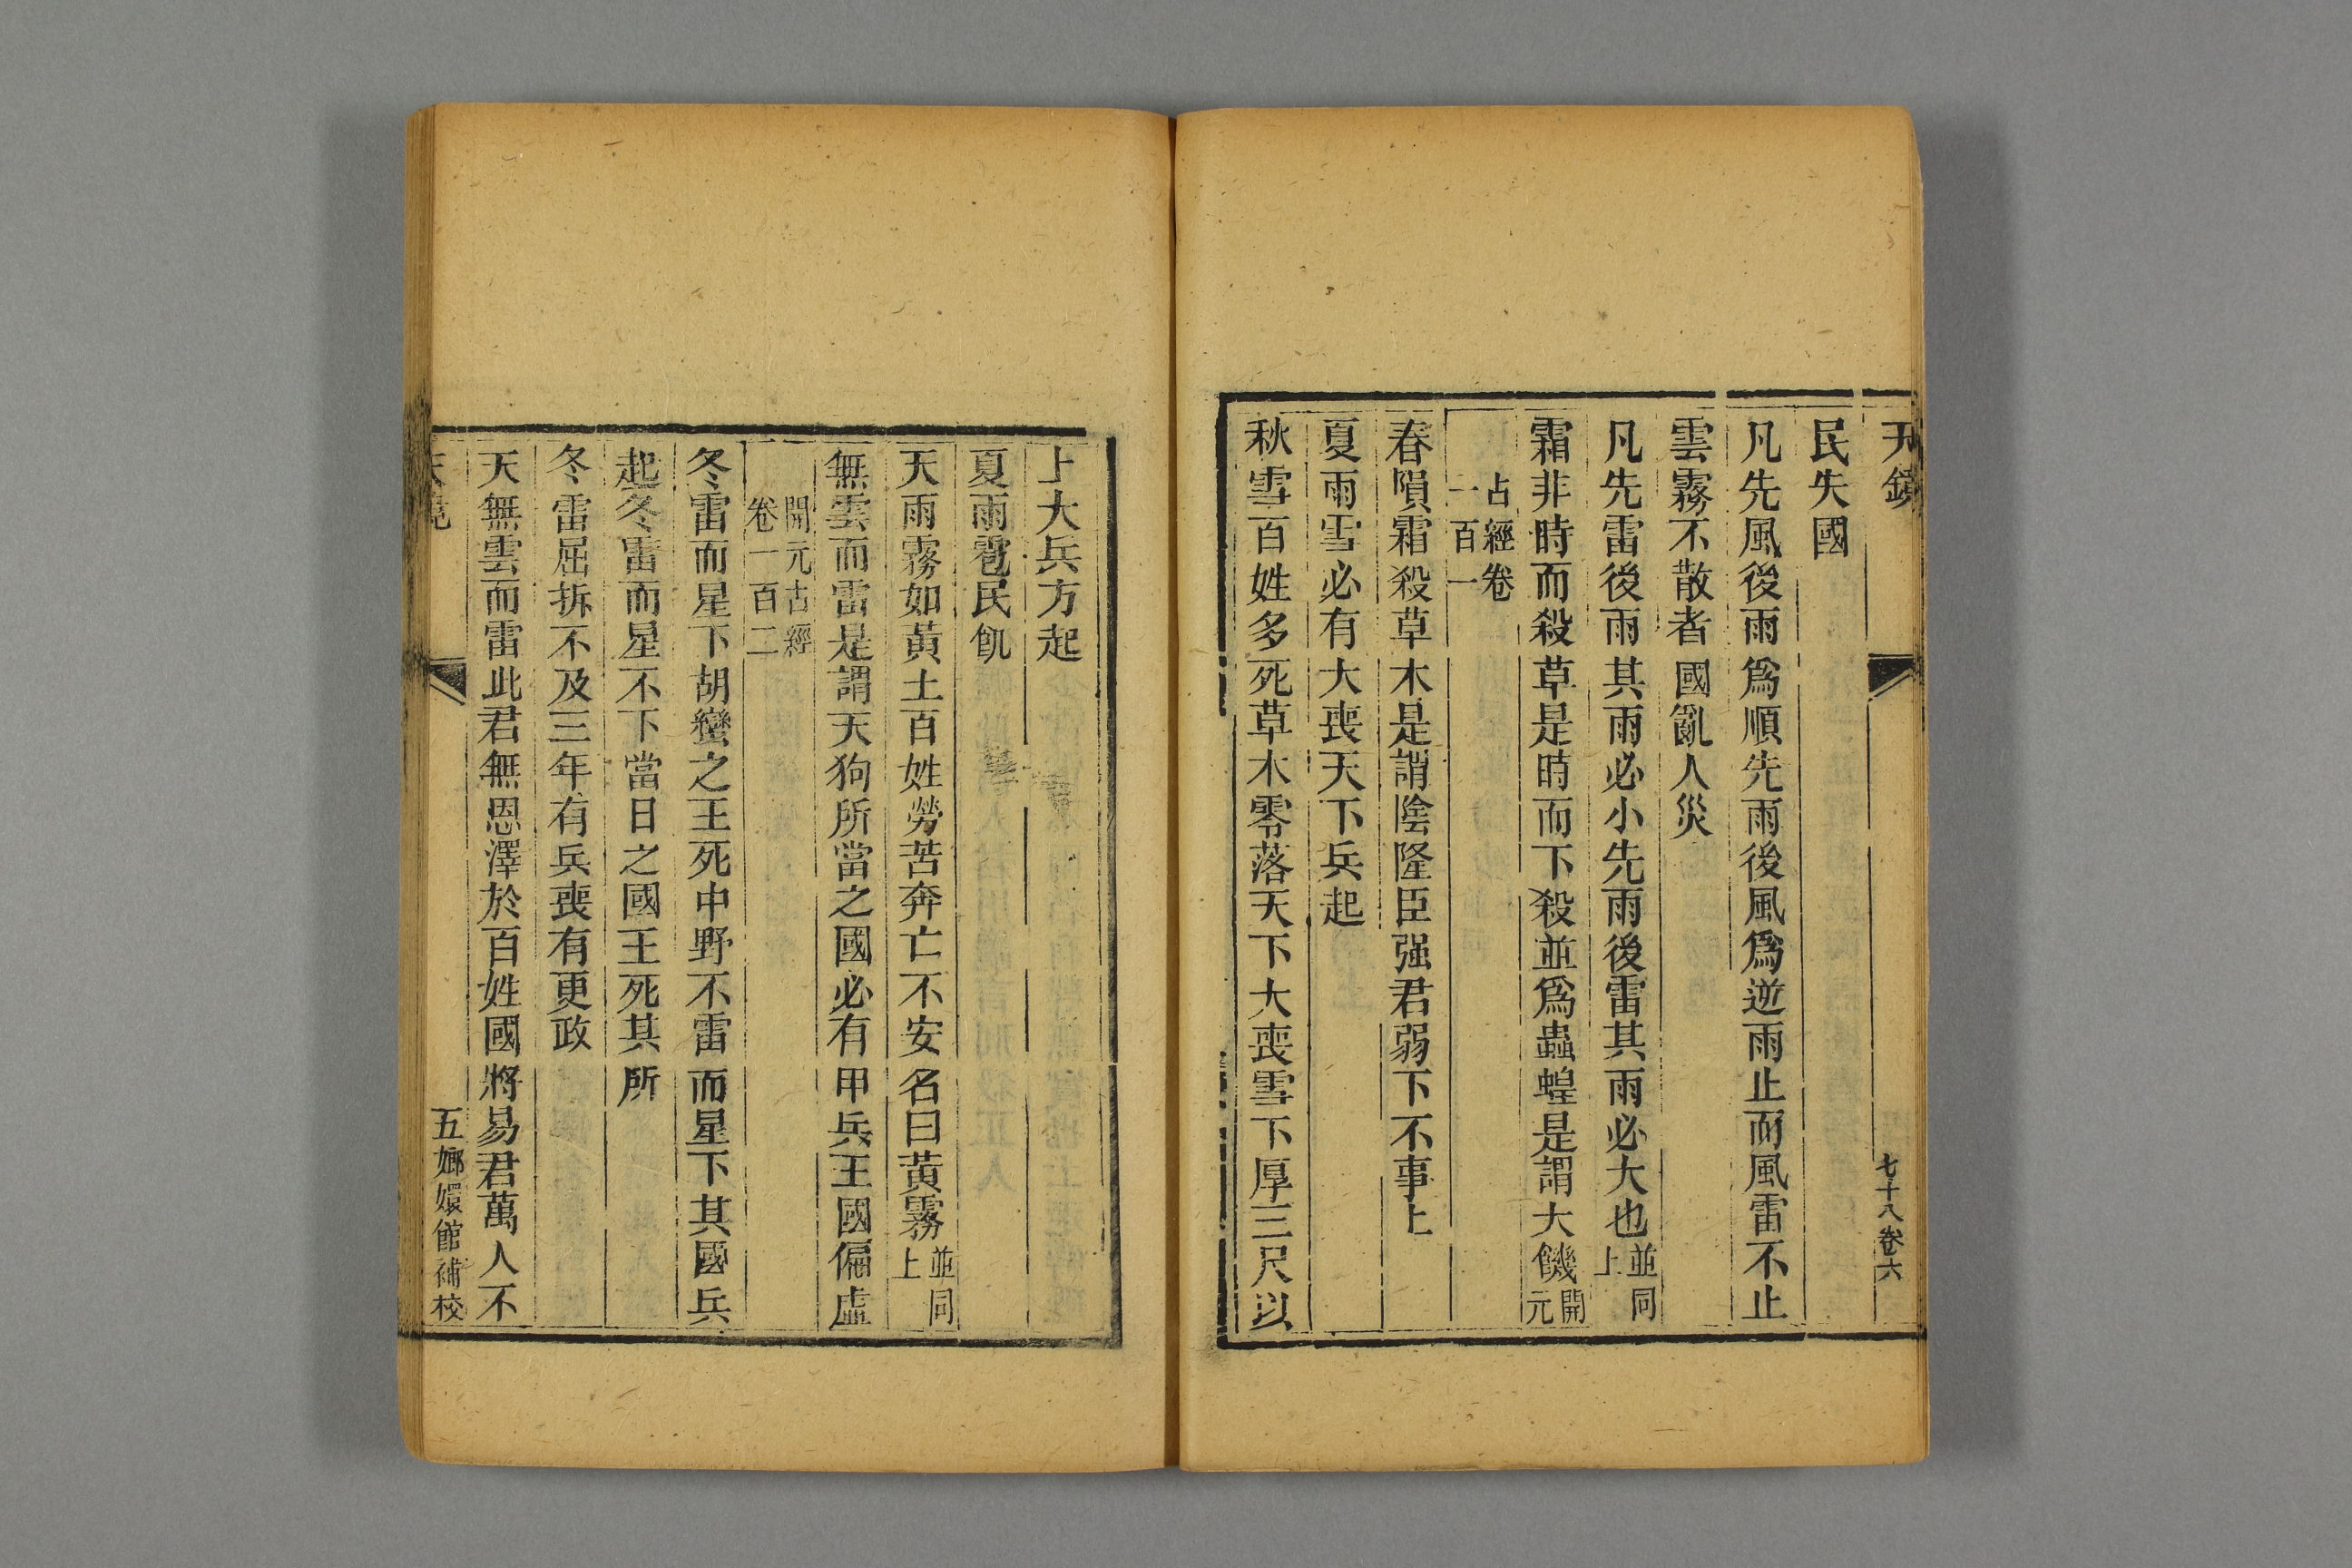 天鏡
七十八卷六
民失國
凡先風後雨爲順先雨後風爲逆雨止而風雷不止
雲霧不散者國亂人災
凡先雷後雨其雨必小先雨後雷其雨必大也並同上
霜非時而殺草是時而下殺並爲蟲蝗是謂大饑開元
占經卷一百一
春隕霜殺草木是謂陰隆臣强君弱下不事上
夏雨雪必有大喪天下兵起
秋雪百姓多死草木零落天下大喪雪下厚三尺以
上大兵方起
夏雨雹民飢
天雨霧如黃土百姓勞苦奔亡不安名曰黃霧並同上
無雲而雷是謂天狗所當之國必有甲兵王國偏虛
開元占經卷一百二
冬雷而星下胡蠻之王死中野不雷而星下其國兵
起冬雷而星不下當日之國王死其所
冬雷屈拆不及三年有兵喪有更政
天無雲而雷此君無恩澤於百姓國將易君萬人不
天鏡
五嫏嬛館補校